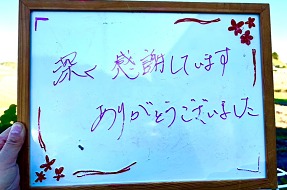 深く 感謝しています
ありがとうございました